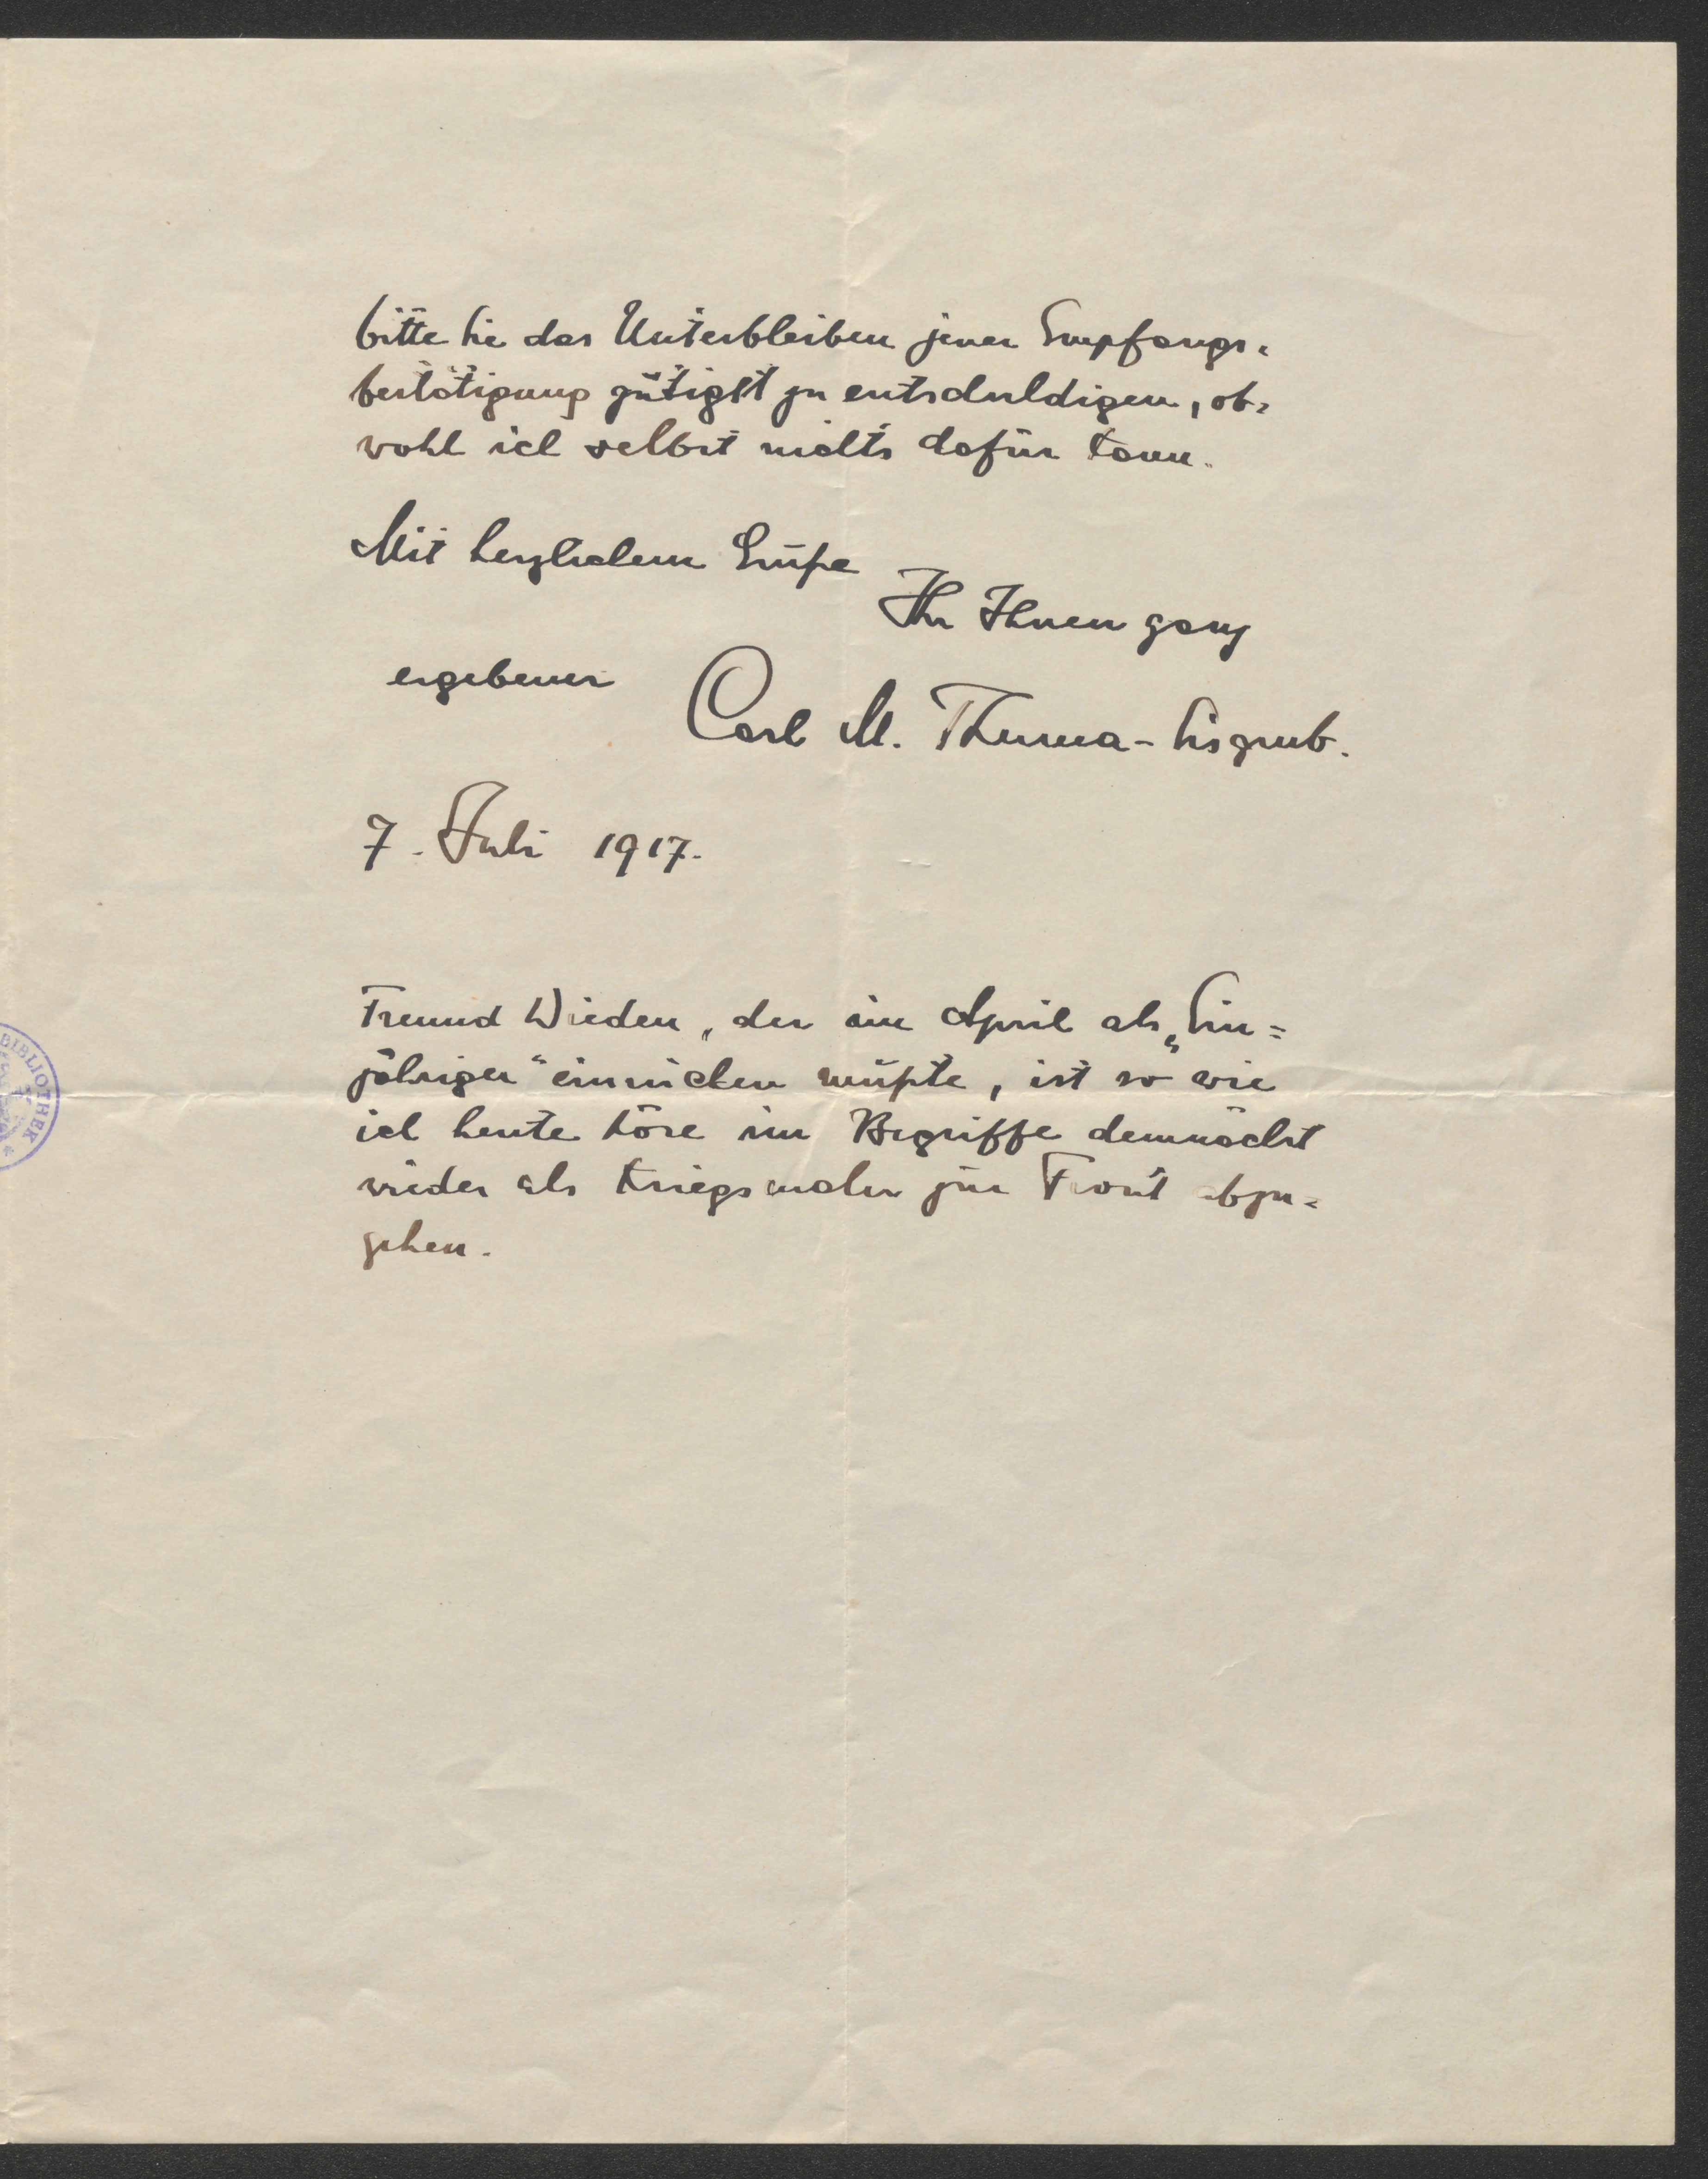 bitte Sie das Unterbleiben jener Empfangs-
bestätigung gütigst zu entschuldigen, ob-
wohl ich selbst nichts dafür kann.
Mit herzlichem Gruße
Ihr Ihnen ganz
ergebener
Carl M. Thuma-
7. Juli 1917.
Freund Wieden, der im April als „Ein=
jähriger" einrücken mußte, ist so wie
ich heute höre im Begriffe demnächst
wieder als Kriegsmaler zur Front abzu-
gehen.
BIBLIOTHEK